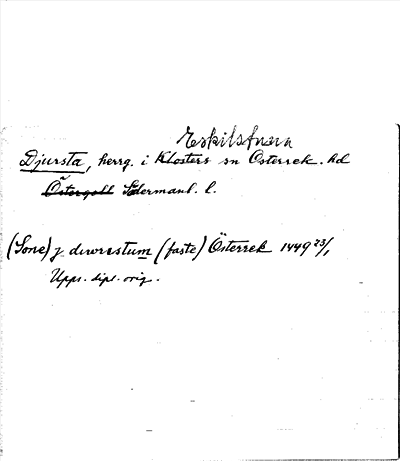 Eskilstuna
Djursta, herrg. i Klosters sn Österrek. hd
Östergötl Södermanl. l.
(Sone) j diwrestum (faste) Österrek 1449 23/1
Upps. dipl. orig.